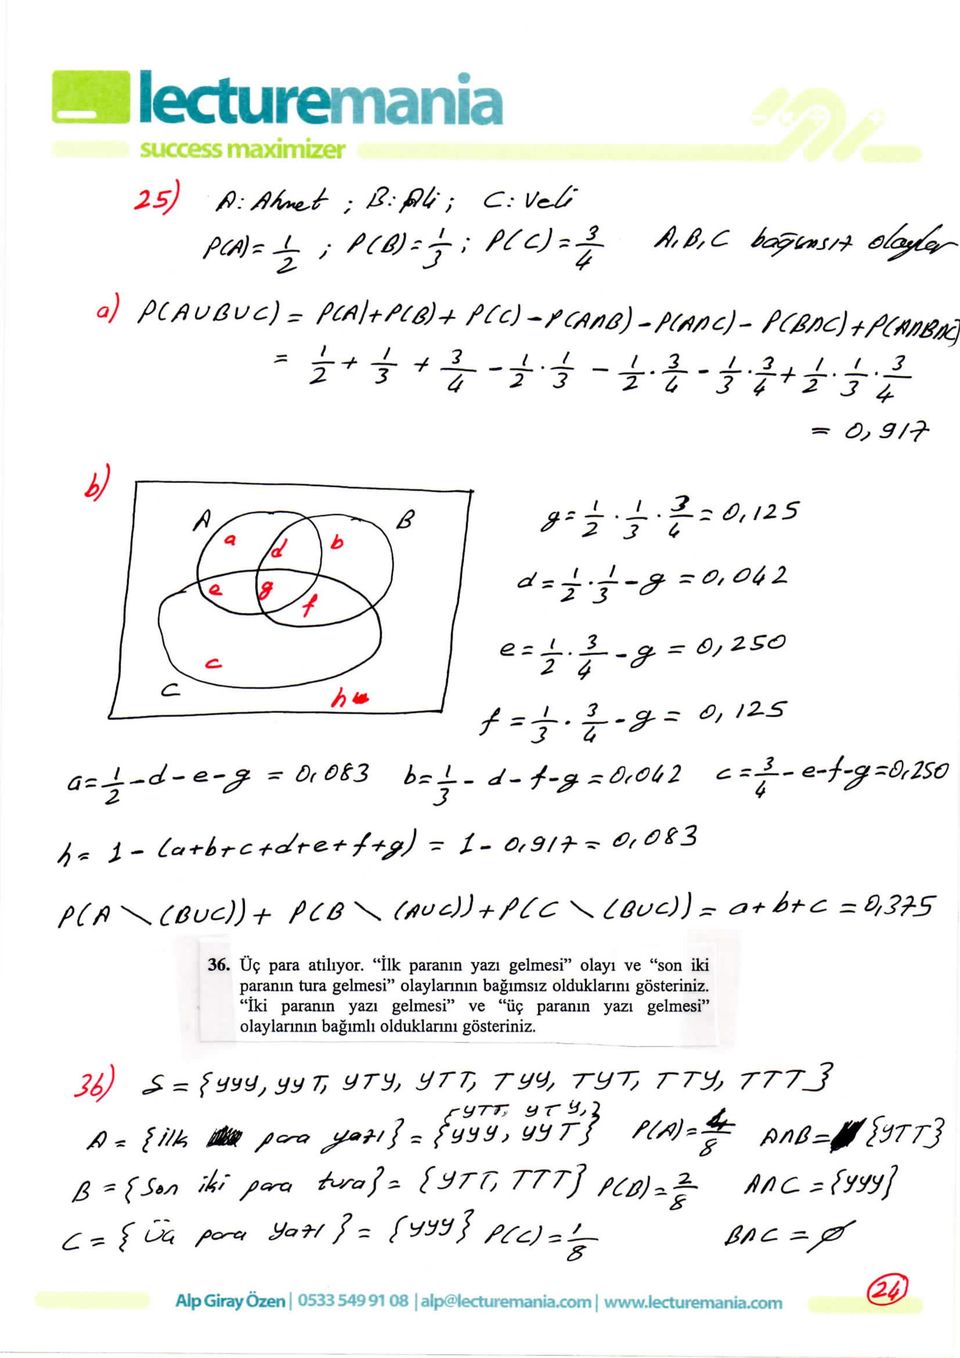 lecturemania
success maximizer
25) A: Ahmet ; B: Ali ; C: Veli
P(A)= 1/2 ; P(B)= 1/3 ; P(C)= 3/4 A, B, C bağımsız olaylar
a) P(A∪B∪C) = P(A)+P(B)+P(C)-P(A∩B)-P(A∩C)-P(B∩C)+P(A∩B∩C)
= 1/2 + 1/3 + 3/4 - 1/2 . 1/3 - 1/2 . 3/4 - 1/3 . 3/4 + 1/2 . 1/3 . 3/4
= 0,917
b)
A a d b B
e g f
c
C h
g= 1/2 . 1/3 . 3/4 = 0,125
d= 1/2 . 1/3 - g = 0,042
e= 1/2 . 3/4 - g = 0,250
f = 1/3 . 3/4 - g = 0,125
a= 1/2 - d - e - g = 0,083 b= 1/3 - d - f - g = 0,042 c = 3/4 - e-f-g = 0,250
h= 1 - (a+b+c+d+e+f+g) = 1 - 0,917 = 0,083
P(A \ (B∪C)) + P(B \ (A∪C)) + P(C \ (B∪C)) = a+b+c = 0,375
36. Üç para atılıyor. “İlk paranın yazı gelmesi” olayı ve “son iki
paranın tura gelmesi” olaylarının bağımsız olduklarını gösteriniz.
“İki paranın yazı gelmesi” ve “üç paranın yazı gelmesi”
olaylarının bağımlı olduklarını gösteriniz.
36) S = {yyy, yyT, yTy, yTT, Tyy, TyT, TTy, TTT}
A = {ilk para yazı} = {yyy, yyT, yTT, yTy,} P(A)= 4/8 A∩B= {yTT}
B = {Son iki para tura} = {yTT, TTT} P(B)= 2/8 A∩C = {yyy}
C = {Üç para yazı} = {yyy} P(C)= 1/8 B∩C = ∅
Alp Giray Özen | 0533 549 91 08 | alp@lecturemania.com | www.lecturemania.com
24